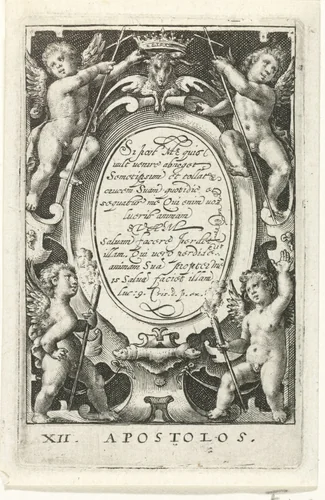 Si post Me quis
vult venire abneget
Semetipsum et tollat
crucem Suam quotidie e
sequatur me Qui enim vol
uerit animam
SUAM
Saluam facere perdet
illam. Qui vero perdid
animam Sua propter me
Salua faciet illam
Luc: 9.
XII. APOSTOLOS.